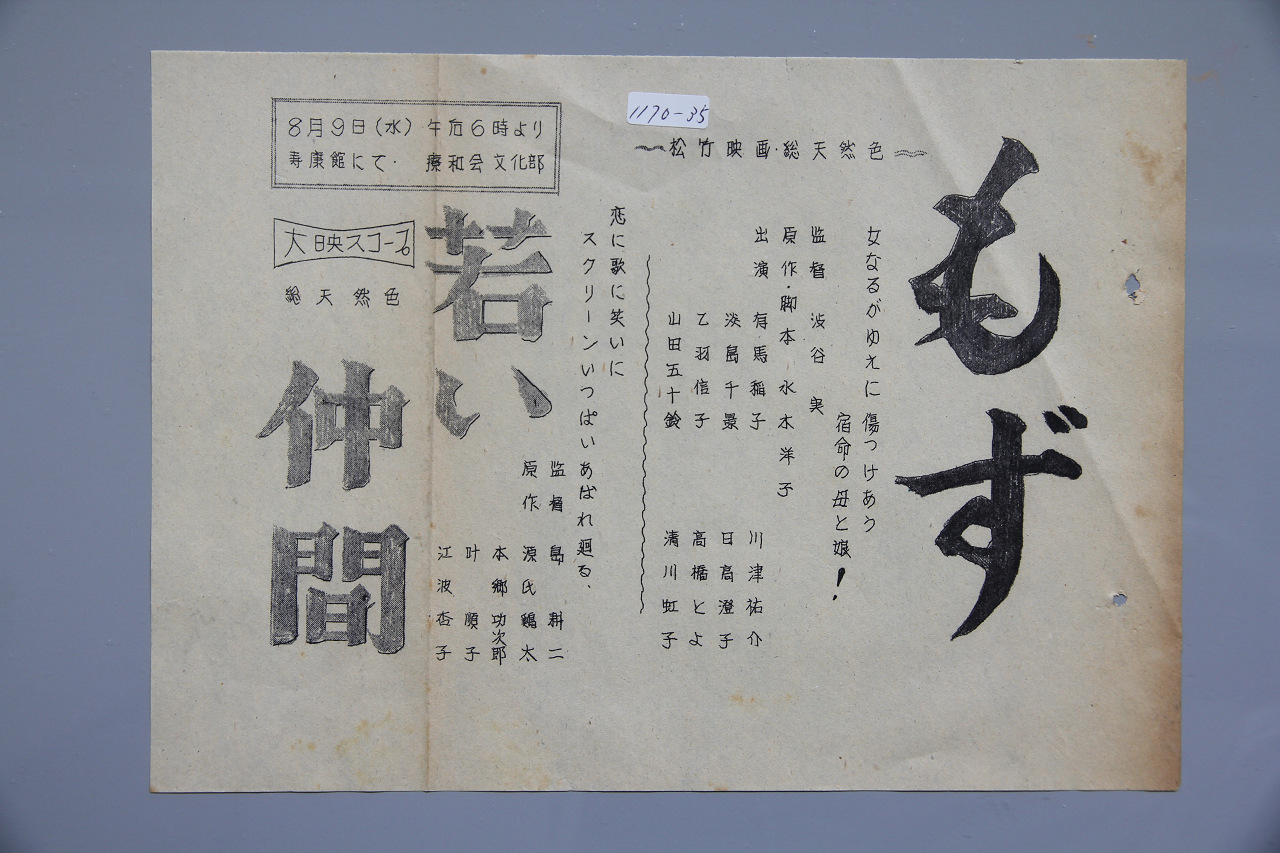 1170-35
もず
〜松竹映画・総天然色〜
女なるがゆえに傷つけあう
宿命の母と娘！
監督 渋谷実
原作・脚本 水木洋子
出演 有馬稲子 川津祐介
淡島千景 日高澄子
乙羽信子 高橋とよ
山田五十鈴 清川虹子
8月9日(水) 午后6時より
寿康館にて・ 療和会文化部
恋に歌に笑いに
スクリーンいっぱいあばれ廻る、
大映スコープ
総天然色
若い
仲間
監督 島耕二
原作 源氏鶏太
本郷功次郎
叶順子
江波杏子